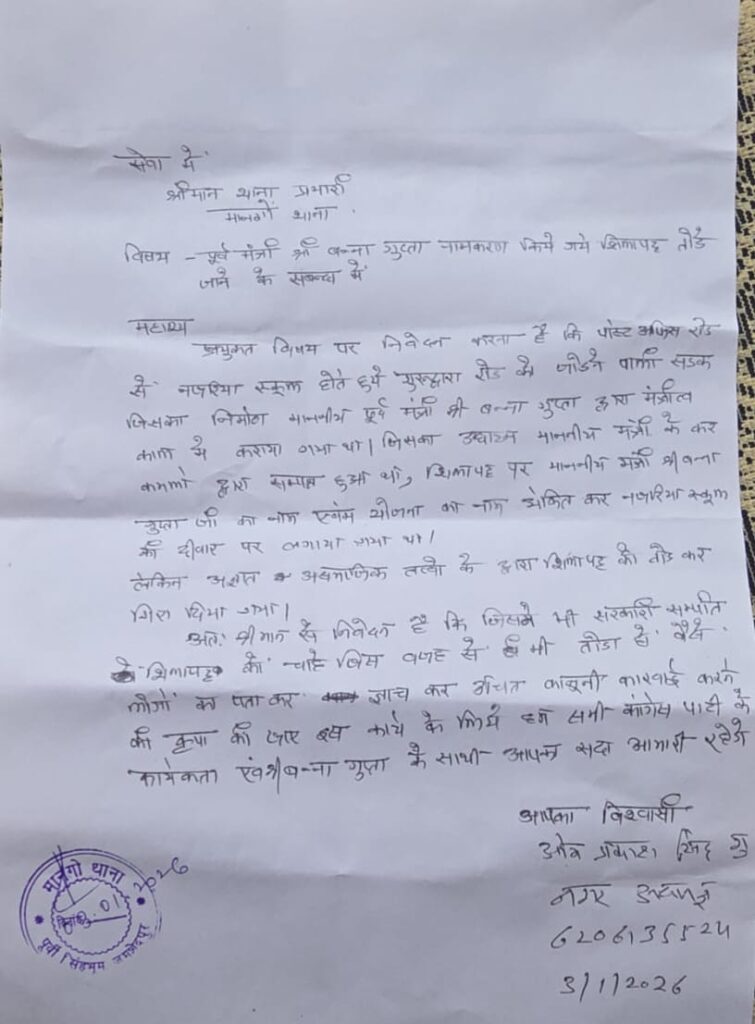 सेवा में
श्रीमान थाना प्रभारी
मानगो थाना .
विषय - पूर्व मंत्री श्री बन्ना गुप्ता नामकरण किये गये शिलापट्ट तोड़े
जाने के सबन्ध में
महाशय
उपयुक्त विषय पर निवेदन करना है कि पोस्ट ऑफिस रोड
से नजरिया स्कूल होते हुये गुरुद्वारा रोड को जोड़ने वाली सड़क
जिसका निर्माण माननीय पूर्व मंत्री श्री बन्ना गुप्ता द्वारा मंत्रीत्व
काल में कराया गया था। जिसका उदघाटन माननीय मंत्री के कर
कमलो द्वारा सम्पन्न हुआ था, शिलापट्ट पर माननीय मंत्री श्री बन्ना
गुप्ता जी का नाम एवंम योजना का नाम अंकित कर नजरिया स्कूल
की दीवार पर लगाया गया था।
लेकिन अज्ञात असमाजिक तत्वो के द्वारा शिलापट्ट को तोड़ कर
गिरा दिया गया।
अतः श्रीमान से निवेदन है कि जिसने भी सरकारी सम्पति
शिलापट्ट को चाहे जिस वजह से भी तोड़ा है वैसे
लोगों का पता कर जाच कर उचित कानूनी कारवाई करने
की कृपा की जाए इस कार्य के लिये हम सभी कांग्रेस पार्टी के
कार्यकता एवं श्री बन्ना गुप्ता के साथी आपका सदा आभारी रहेगे
आपका विश्वासी
ओम प्रकाश सिंह
नगर अध्यक्ष
6206135524
3/1/2026
मानगो थाना
2026
दिनांक 03.01
पूर्वी सिंहभूम जमशेदपुर